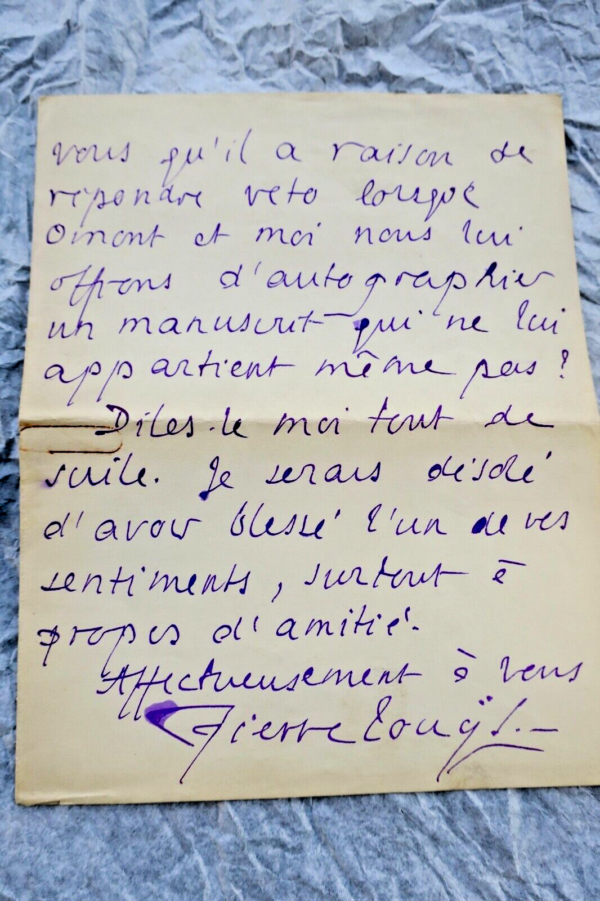 vous qu'il a raison de
répondre veto lorsque
Omont et moi nous lui
offrons d'autographier
un manuscrit qui ne lui
appartient même pas ?
Dites-le moi tout de
suite. Je serais désolé
d'avoir blessé l'un de vos
sentiments, surtout à
propos d'amitié.
Affectueusement à vous
Pierre Louÿs.–